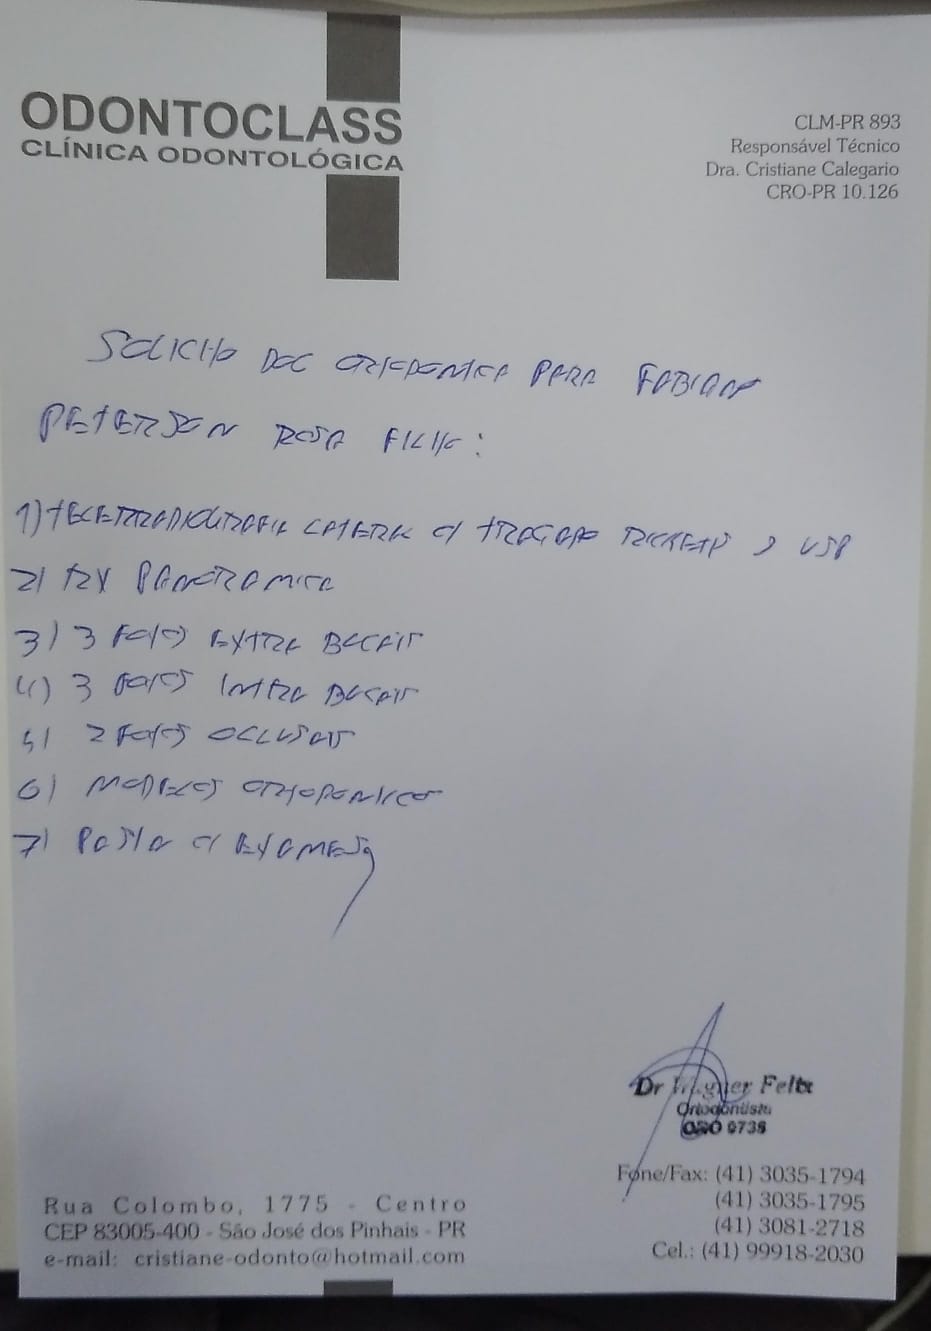 ODONTOCLASS
CLÍNICA ODONTOLÓGICA
CLM-PR 893
Responsável Técnico
Dra. Cristiane Calegario
CRO-PR 10.126
SOLICITO DOC ORTODONTICA PARA FABIAN
PETERSON ROSA FILHO:
1) TELERRADIOGRAFIA LATERAL C/ TRAÇADO RICKETTS E USP
2) RX PANORAMICA
3) 3 FOTOS EXTRA BUCAIS
4) 3 FOTOS INTRA BUCAIS
5) 2 FOTOS OCLUSAIS
6) MODELOS ORTODONTICOS
7) PASTA C/ EXAMES
Dr Wagner Felix
Ortodontista
CRO 9738
Fone/Fax: (41) 3035-1794
(41) 3035-1795
(41) 3081-2718
Cel.: (41) 99918-2030
Rua Colombo, 1775 - Centro
CEP 83005-400 - São José dos Pinhais - PR
e-mail: cristiane-odonto@hotmail.com